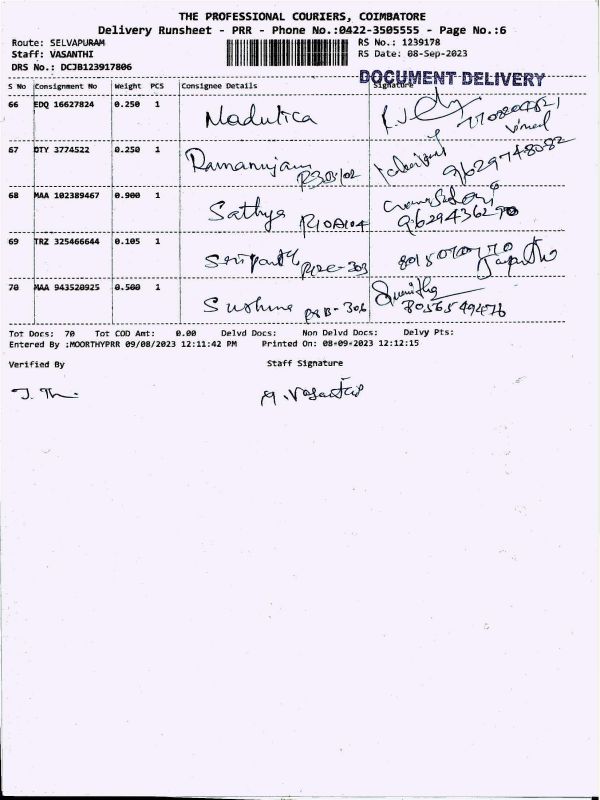 THE PROFESSIONAL COURIERS, COIMBATORE
Delivery Runsheet - PRR - Phone No.:0422-3505555 - Page No.:6
Route: SELVAPURAM RS No.: 1239178
Staff: VASANTHI RS Date: 08-Sep-2023
DRS No.: DCJB123917806
DOCUMENT DELIVERY
S No Consignment No Weight PCS Consignee Details Signature
66 EDQ 16627824 0.250 1 Madulica
Vimal
67 DTY 3774522 0.250 1 Ramanujam 9629748082
68 MAA 102389467 0.900 1 Sathya R10A104 9629436290
69 TRZ 325466644 0.105 1
70 MAA 943520925 0.500 1 8056549476
Tot Docs: 70 Tot COD Amt: 0.00 Delvd Docs: Non Delvd Docs: Delvy Pts:
Entered By :MOORTHYPRR 09/08/2023 12:11:42 PM Printed On: 08-09-2023 12:12:15
Verified By Staff Signature